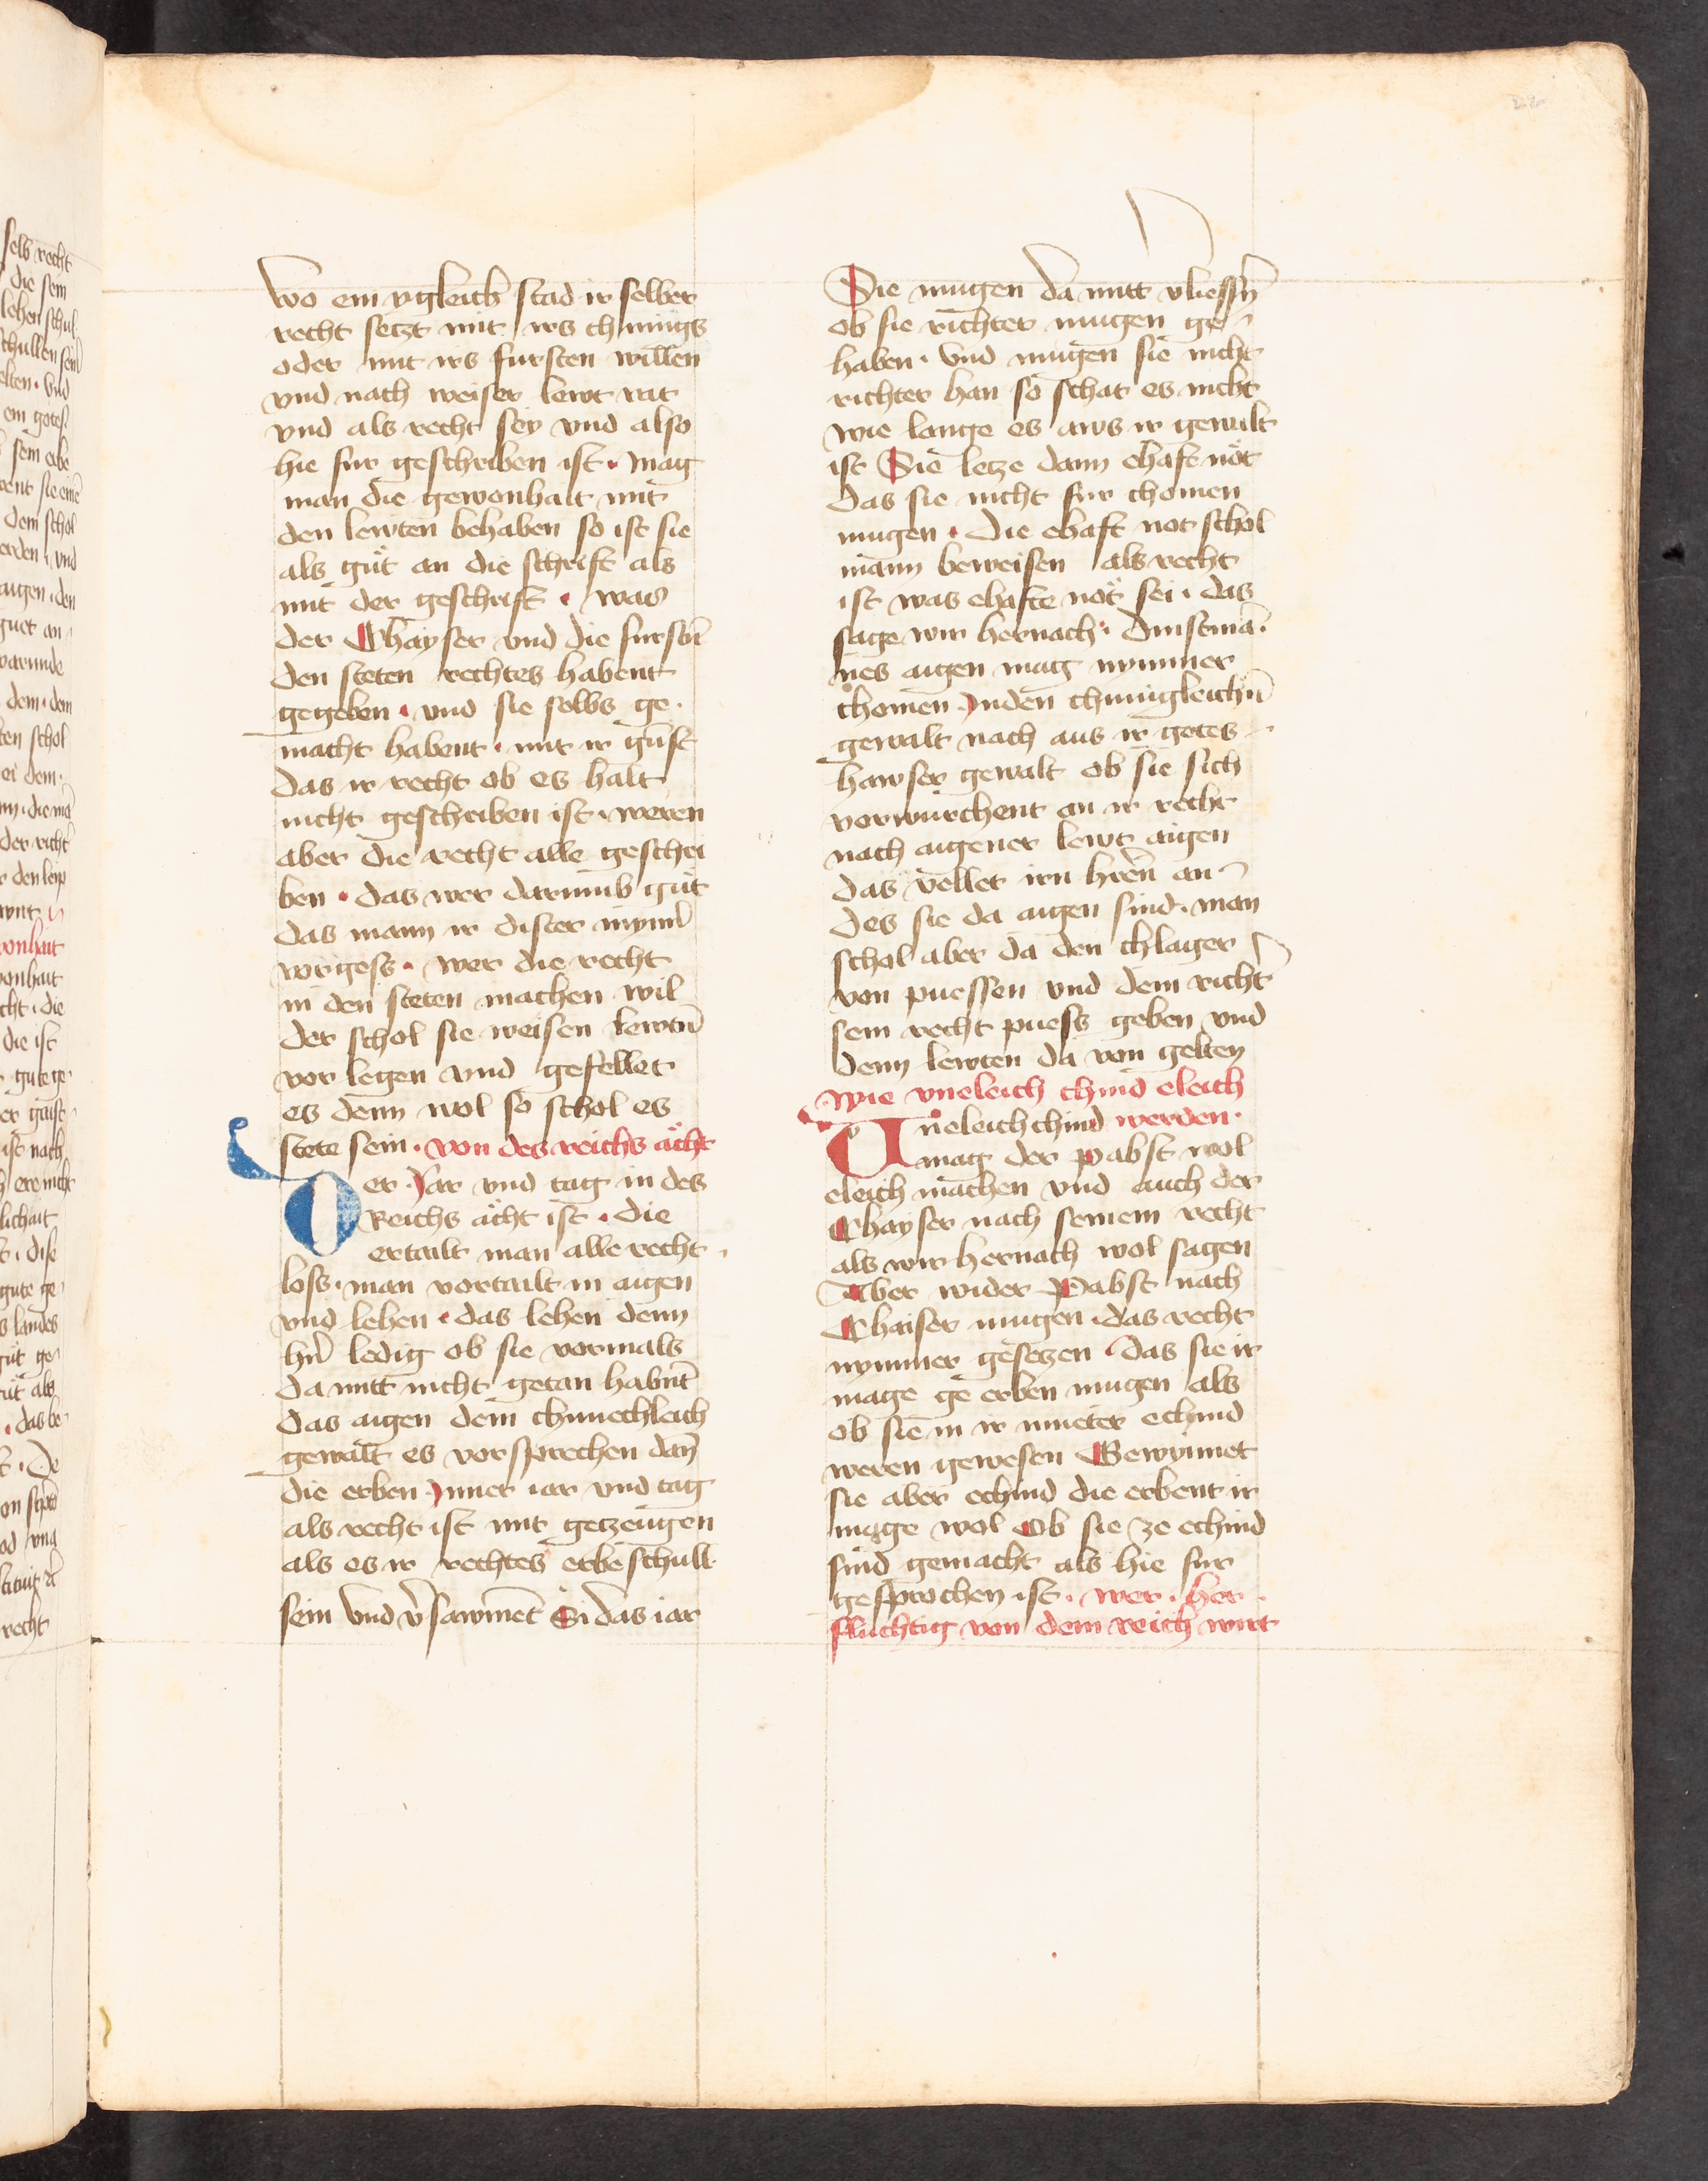 wo ein ygleich stad ir selber
recht setzt mit irs chunigs
oder mit irs fursten willen
vnd nach weiser lewt rat
vnd als recht sey vnd also
hie fur geschriben ist · mag
man die gewonhait mit
den lewten behaben so ist sie
als gůt an die schrift als
mit der geschrift · was
der Chayser vnd die fursten
den steten rechtes habent
gegeben · vnd sie selbs ge·
macht habent · mit ir gunst
das ir recht ob es halt
nicht geschriben ist · weren
aber die recht alle geschri
ben · das wer darumb gůt
das mann ir dister mynner
vorgess · wer die recht
in den steten machen wil
der schol sie weisen lewten
vor legen vnd gefellet
es denn wol so schol es
stete sein · von des reichs ächt
Der Jar vnd tag in des
Reichs ächt ist · die
ertailt man alle recht
loss · man vortailt in aigen
vnd lehen · das lehen denn
hern ledig ob sie vormals
da mitt nicht getan habent
das aigen dem chunechleich
gewalt es vorsprechen dann
die erben Inner iar vnd tag
als recht ist mit getzeugen
als es ir rechtes erbe schull·
sein vnd v̄sawmet Si das iar
Sie mugen da mitt vliessen
ob sie richter mugen ge
haben · vnd mugen sie nicht
richter han so schat es nicht
wie lange es aws ir gewalt
ist Sie letze dann ehaft nöt
das sie nicht fur chomen
mugen · die ehaft not schol
mann beweisen als recht
ist was ehafte nöt sei · das
sage wir hernach · dinstman·
nes aigen mag nymmer
chomen Inden chunigleichen
gewalt nach aus ir gotes
hawser gewalt ob sie sich
vorwurchent an ir recht
nach aigener lewt aigen
das vellet irn hren an
des sie da aigen sind · man
schol aber da den chlager
von puessen vnd dem richt
sein recht puess geben vnd
denn lewten da von gelten
wie vneleich chind eleich
Uneleich chind werden ·
mag der pabst wol
eleich machen vnd auch der
Chayser nach seinem recht
als wir hernach wol sagen
Aber wider Pabst nach
Chaiser mugen das recht
nymmer gesetzen das sie ir
mage ge erben mugen als
ob sie in ir mueter echind
weren gewesen Gewynnet
sie aber echind die erbent ir
mage wol Ob sie ze echind
sind gemacht als hie fur
gesprochen ist · wer · her
fluchtig von dem reich wirt